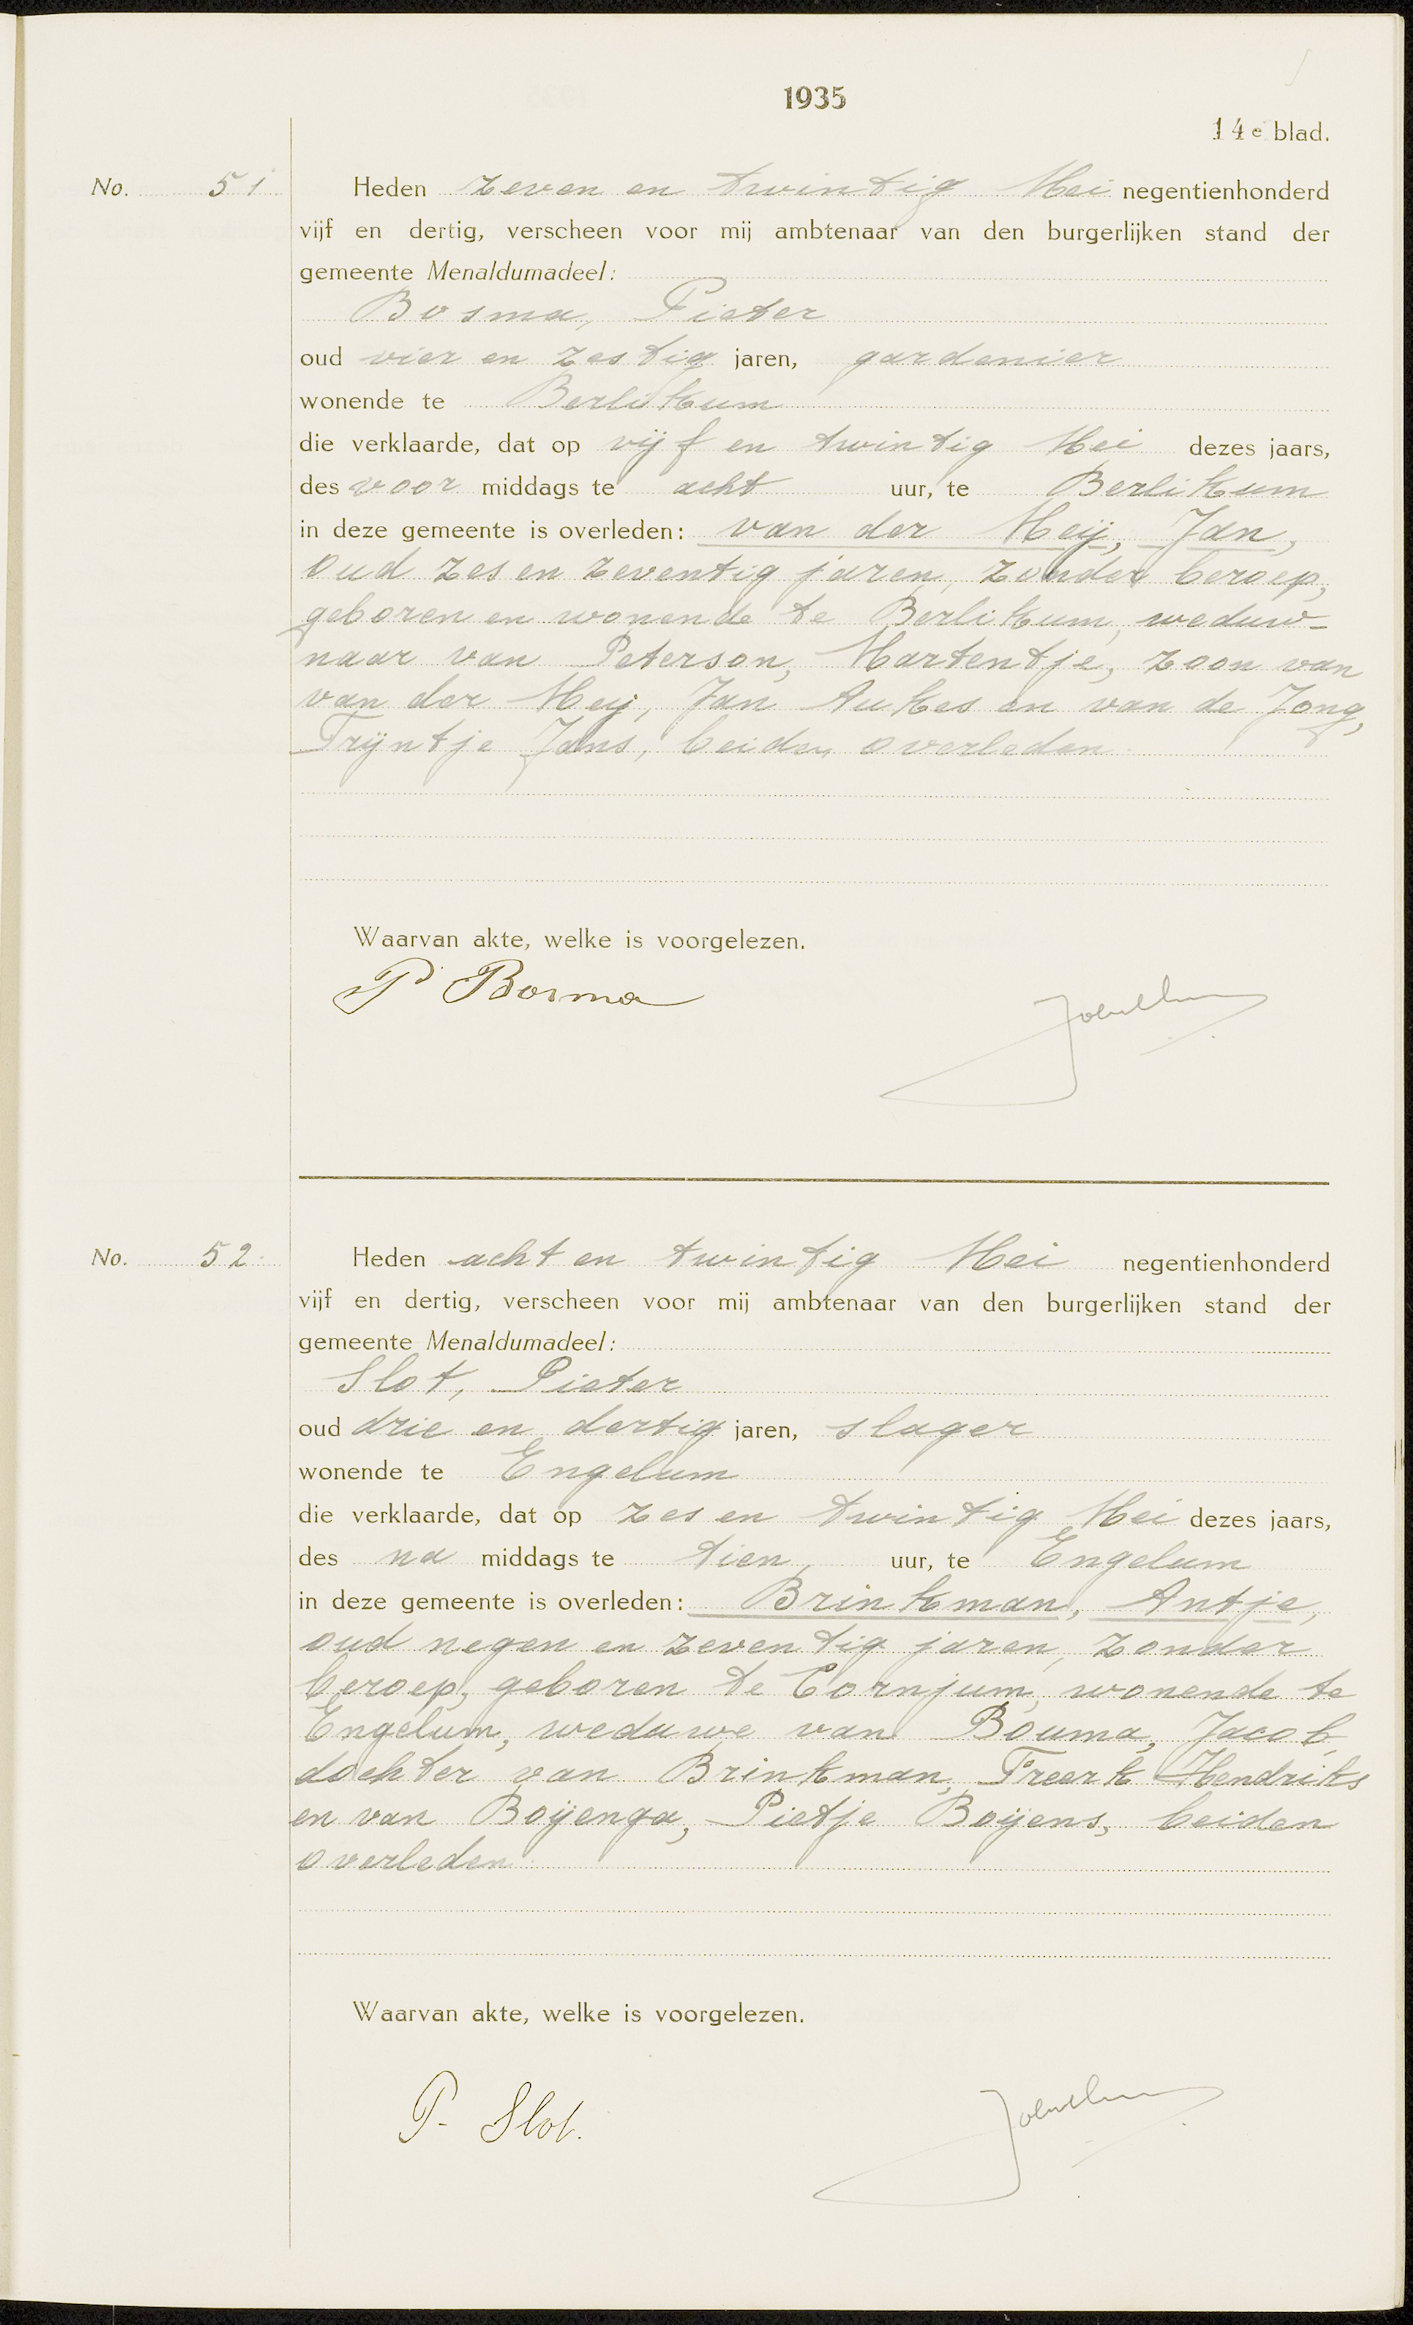 1935
14e blad.
No. 51
Heden zeven en twintig Mei negentienhonderd
vijf en dertig, verscheen voor mij ambtenaar van den burgerlijken stand der
gemeente Menaldumadeel:
Bosma, Pieter
oud vier en zestig jaren, gardenier
wonende te Berlikum
die verklaarde, dat op vijf en twintig Mei dezes jaars,
des voor middags te acht uur, te Berlikum
in deze gemeente is overleden: van der Meij, Jan,
oud zes en zeventig jaren, zonder beroep,
geboren en wonende te Berlikum, weduw-
naar van Peterson, Martentje, zoon van
van der Meij, Jan Aukes en van de Jong,
Trijntje Jans, beiden overleden
Waarvan akte, welke is voorgelezen.
P Bosma
No. 52
Heden acht en twintig Mei negentienhonderd
vijf en dertig, verscheen voor mij ambtenaar van den burgerlijken stand der
gemeente Menaldumadeel:
Slot, Pieter
oud drie en dertig jaren, slager
wonende te Engelum
die verklaarde, dat op zes en twintig Mei dezes jaars,
des na middags te tien uur, te Engelum
in deze gemeente is overleden: Brinkman, Antje,
oud negen en zeventig jaren, zonder
beroep, geboren te Cornjum, wonende te
Engelum, weduwe van Bouma, Jacob
dochter van Brinkman, Freerk Hendriks
en van Boijenga, Pietje Boijens, beiden
overleden
Waarvan akte, welke is voorgelezen.
P. Slot.